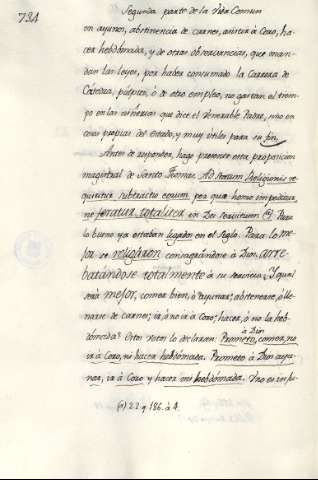 734
Segunda parte de la Vida Comun
en ayunos, abstinencia de carnes, asistir à Coro, ha-
cer hebdomada, y de otras observancias, que man-
dan las leyes, por haber consumado la Carrera de
Catedra, pulpito, ò de otro empleo, no gastan el tiem-
po en las niñerias que dice el Venerable Padre, sino en
cosas propias de Estado, y muy utiles para su fin.
Antes de responder, hago presente esta proposicion
magistral de Santo Thomas: Ad statum Religionis re-
quiritur subtractio eorum per quæ homo impeditur,
ne feratur totaliter in Dei servitium (*) Para
lo bueno ya estaban ligados en el siglo. Para lo me-
jor se religaron consagrandose à Dios, arre-
batandose totalmente à su servicio. Y qual
será mejor, comer bien, ò ayunar; abstenerse, ò lle-
narse de carnes; ir, ò no ir à Coro; hacer, ò no la heb-
domada? Otros voten lo declaran. Prometo, à Dios comer, no
ir à Coro, ni hacer hebdomada. Prometo à Dios ayu-
nar, ir à Coro y hacer mi hebdomada. Y no es in ju-
(*) 2.2. q. 186. à 4.